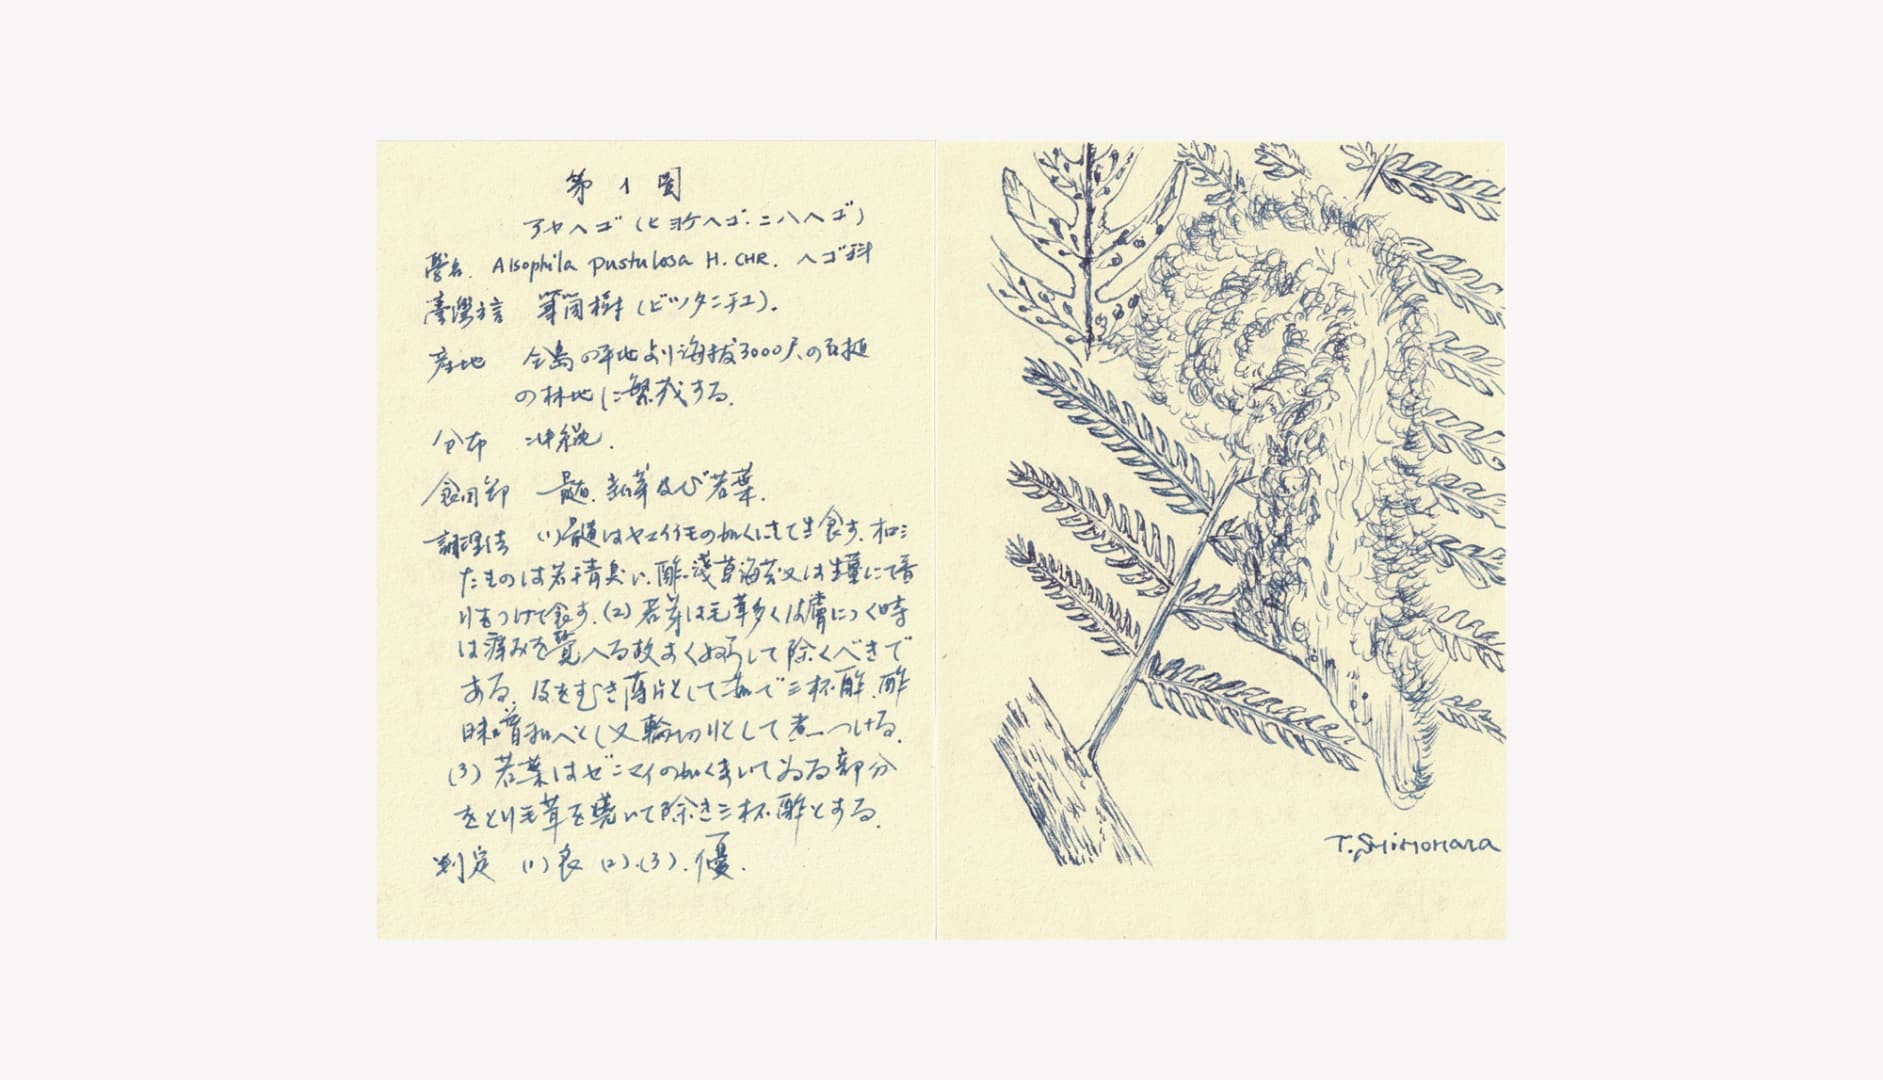 第1圖
アヤヘゴ(ヒヨケヘゴ.ニハヘゴ)
學名. Alsophila pustulosa H. CHR. ヘゴ科
臺灣方言 筆筒樹(ビツタンチユ).
産地 全島の平地より海抜3000尺の
の林地に繁茂する.
分布 沖縄.
食用部 髄. 新芽及び若葉.
調理法 (1)髄はヤマイモの如くにして生食す. 
たものは若干青臭い. 酢. 淺草海苔又は生薑にて香
りをつけて食す.(2)若芽は毛茸多く皮膚につく時
は痒みを覚へる故 して除くべきで
ある. 皮をむき薄片として茹で三杯酢. 酢
味噌和へとし又輪切りとして煮つける.
(3)若葉はゼンマイの如くまいてゐる部分
をとり毛茸を焼いて除き三杯酢とする.
判定 (1)良(2).(3).優.
T. Shimohara